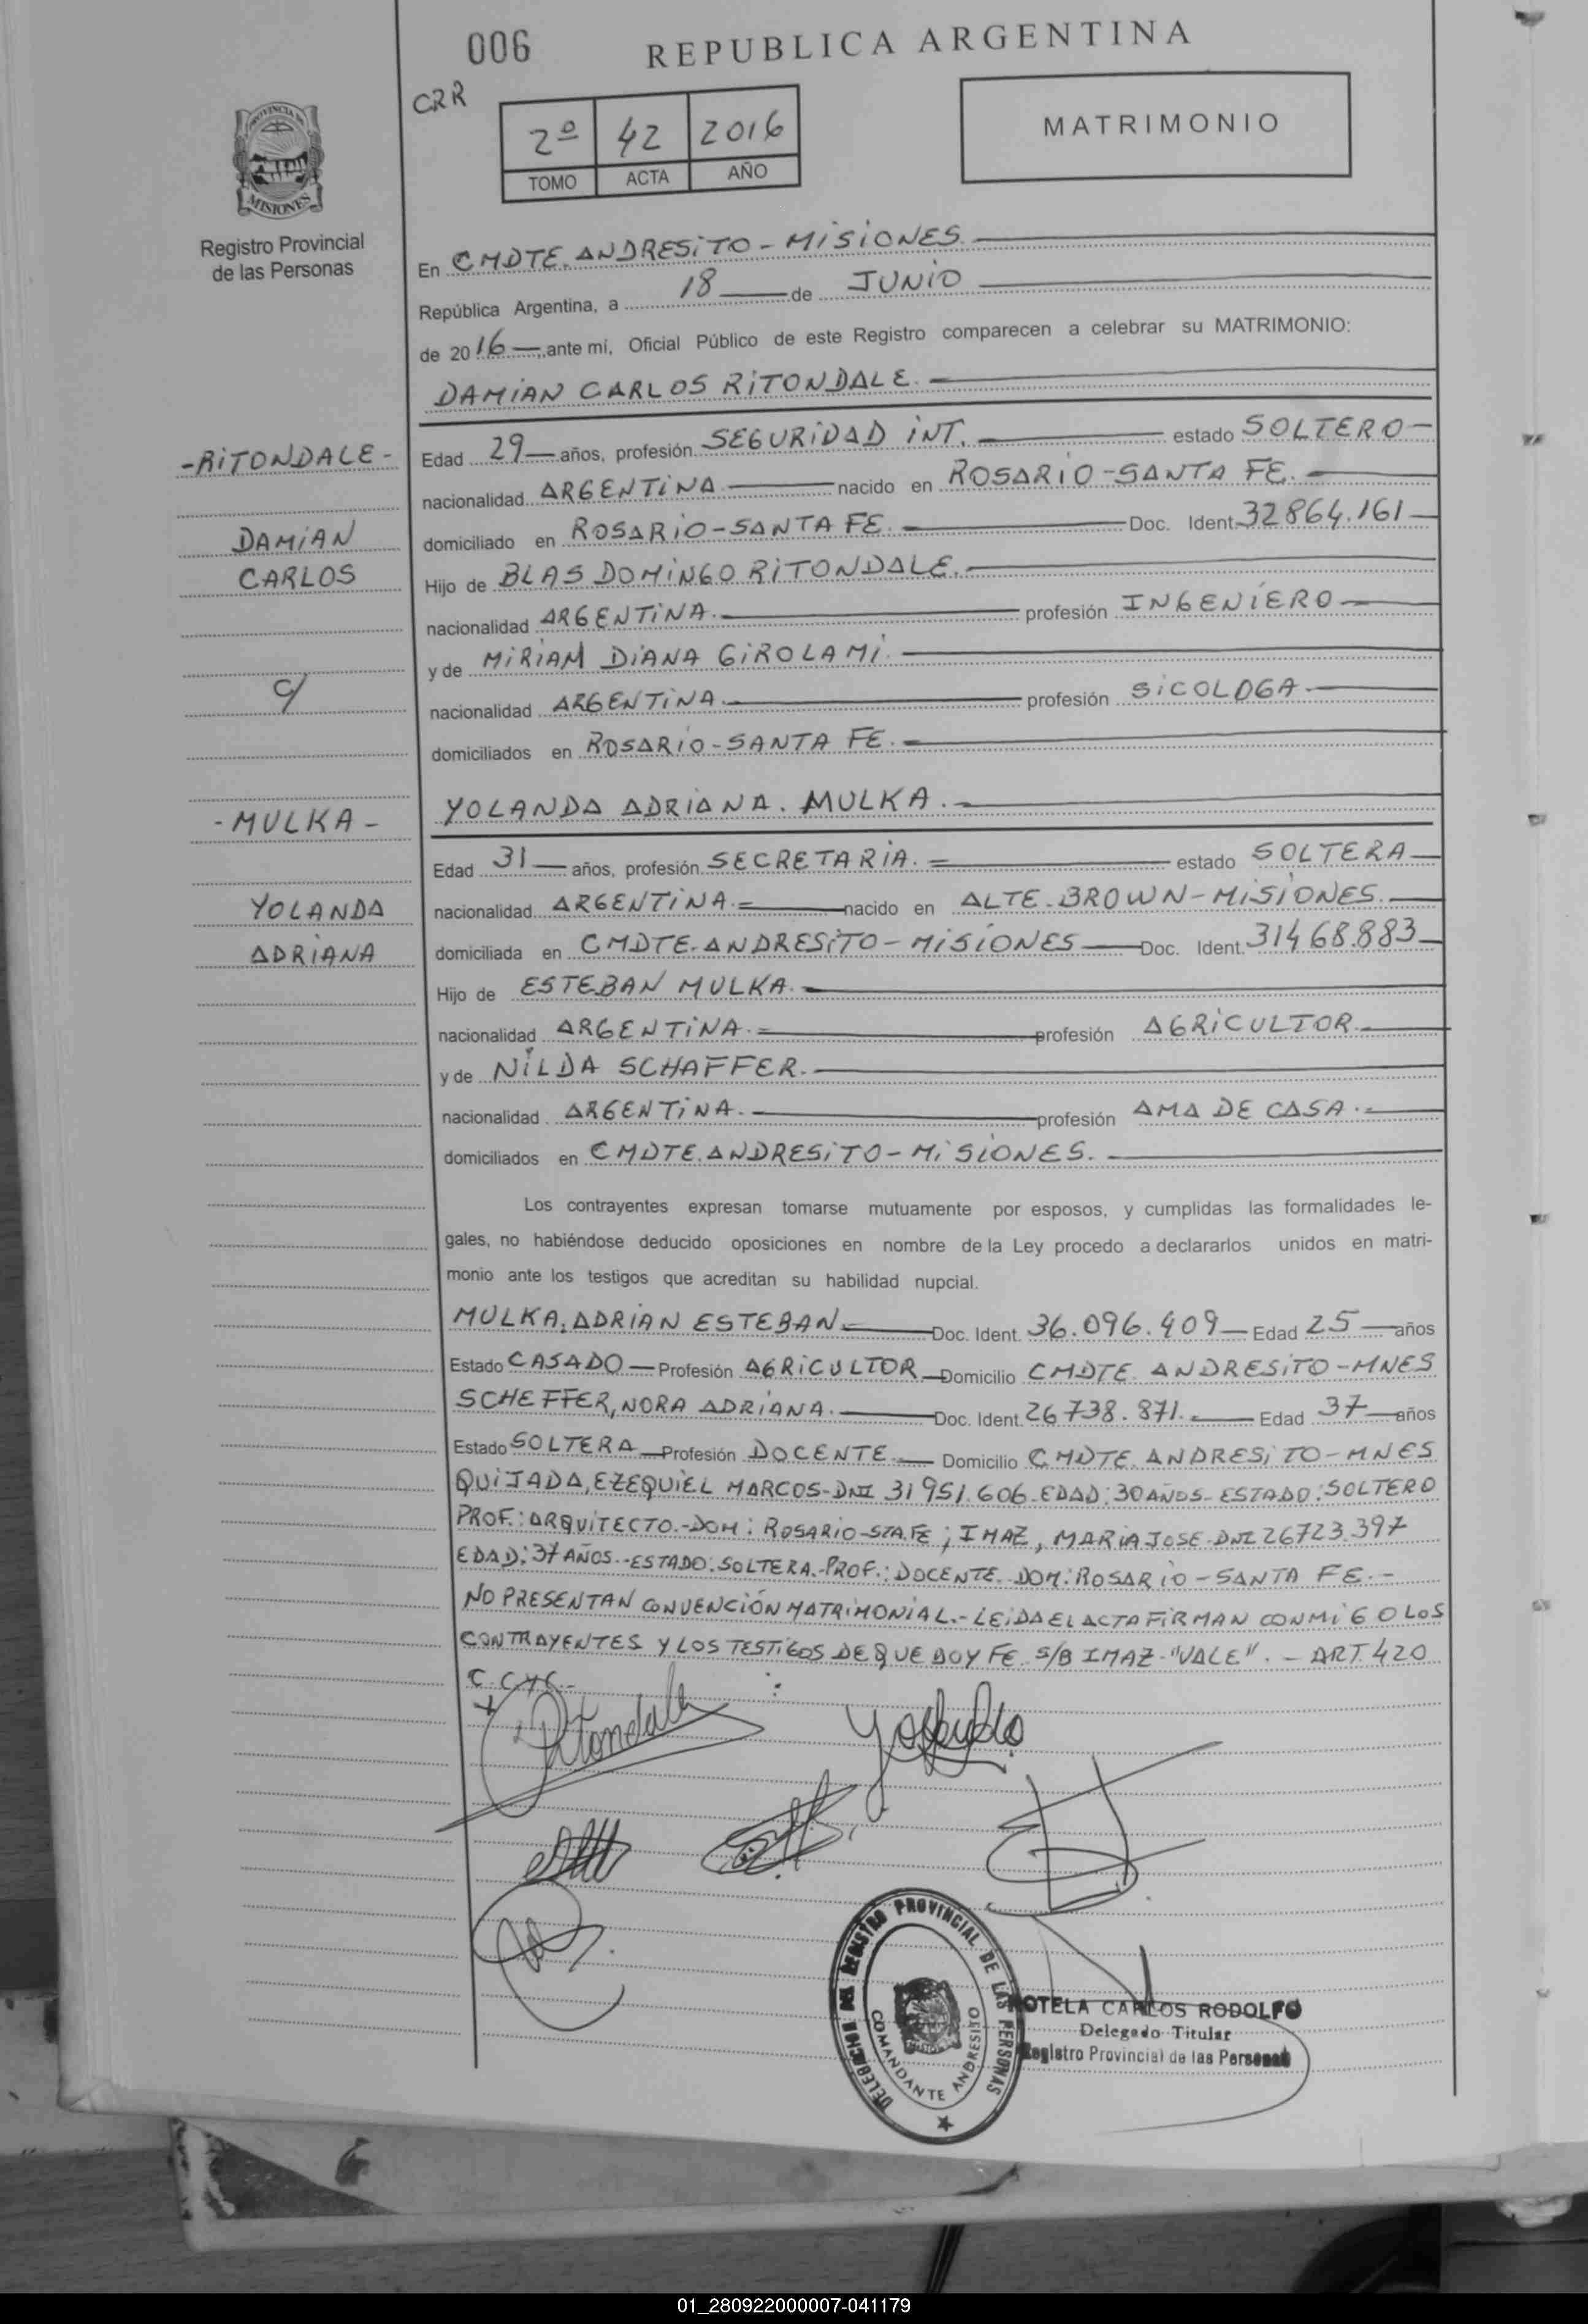 006
REPUBLICA ARGENTINA
CRR
2º 42 2016
TOMO ACTA AÑO
MATRIMONIO
PROVINCIA DE
MISIONES
Registro Provincial
de las Personas
En CMDTE. ANDRESITO - MISIONES.
República Argentina, a 18 de JUNIO
de 2016 ante mí, Oficial Público de este Registro comparecen a celebrar su MATRIMONIO:
DAMIAN CARLOS RITONDALE.
-RITONDALE- Edad 29 años, profesión SEGURIDAD INT. estado SOLTERO
nacionalidad ARGENTINA nacido en ROSARIO-SANTA FE.
DAMIAN domiciliado en ROSARIO-SANTA FE. Doc. Ident. 32864.161
CARLOS Hijo de BLAS DOMINGO RITONDALE.
nacionalidad ARGENTINA. profesión INGENIERO
y de MIRIAM DIANA GIROLAMI.
C/ nacionalidad ARGENTINA. profesión SICOLOGA
domiciliados en ROSARIO-SANTA FE.
-MULKA- YOLANDA ADRIANA. MULKA.
Edad 31 años, profesión SECRETARIA. estado SOLTERA
YOLANDA nacionalidad ARGENTINA. nacido en ALTE. BROWN-MISIONES.
ADRIANA domiciliada en CMDTE. ANDRESITO-MISIONES Doc. Ident. 31468.883
Hijo de ESTEBAN MULKA.
nacionalidad ARGENTINA. profesión AGRICULTOR.
y de NILDA SCHAFFER.
nacionalidad ARGENTINA. profesión AMA DE CASA.
domiciliados en CMDTE. ANDRESITO-MISIONES.
Los contrayentes expresan tomarse mutuamente por esposos, y cumplidas las formalidades le-
gales, no habiéndose deducido oposiciones en nombre de la Ley procedo a declararlos unidos en matri-
monio ante los testigos que acreditan su habilidad nupcial.
MULKA, ADRIAN ESTEBAN Doc. Ident. 36.096.409 Edad 25 años
Estado CASADO Profesión AGRICULTOR Domicilio CMDTE. ANDRESITO-MNES
SCHEFFER, NORA ADRIANA. Doc. Ident. 26738.871. Edad 37 años
Estado SOLTERA Profesión DOCENTE Domicilio CMDTE. ANDRESITO-MNES
QUIJADA, EZEQUIEL MARCOS-DNI 31951.606 EDAD: 30 AÑOS-ESTADO: SOLTERO
PROF.: ARQUITECTO.-DOM: ROSARIO-STA.FE; IMAZ, MARIA JOSE-DNI 26723.397
EDAD: 37 AÑOS.-ESTADO: SOLTERA.-PROF.: DOCENTE. DOM: ROSARIO-SANTA FE.-
NO PRESENTAN CONVENCIÓN MATRIMONIAL.-LEIDA EL ACTA FIRMAN CONMIGO LOS
CONTRAYENTES Y LOS TESTIGOS DE QUE DOY FE. S/B IMAZ-"VALE".-ART. 420
C.CYC.-
Ritondale
DELEGACIÓN DEL REGISTRO PROVINCIAL DE LAS PERSONAS
COMANDANTE ANDRESITO
OTELA CARLOS RODOLFO
Delegado Titular
Registro Provincial de las Personas
01_280922000007-041179